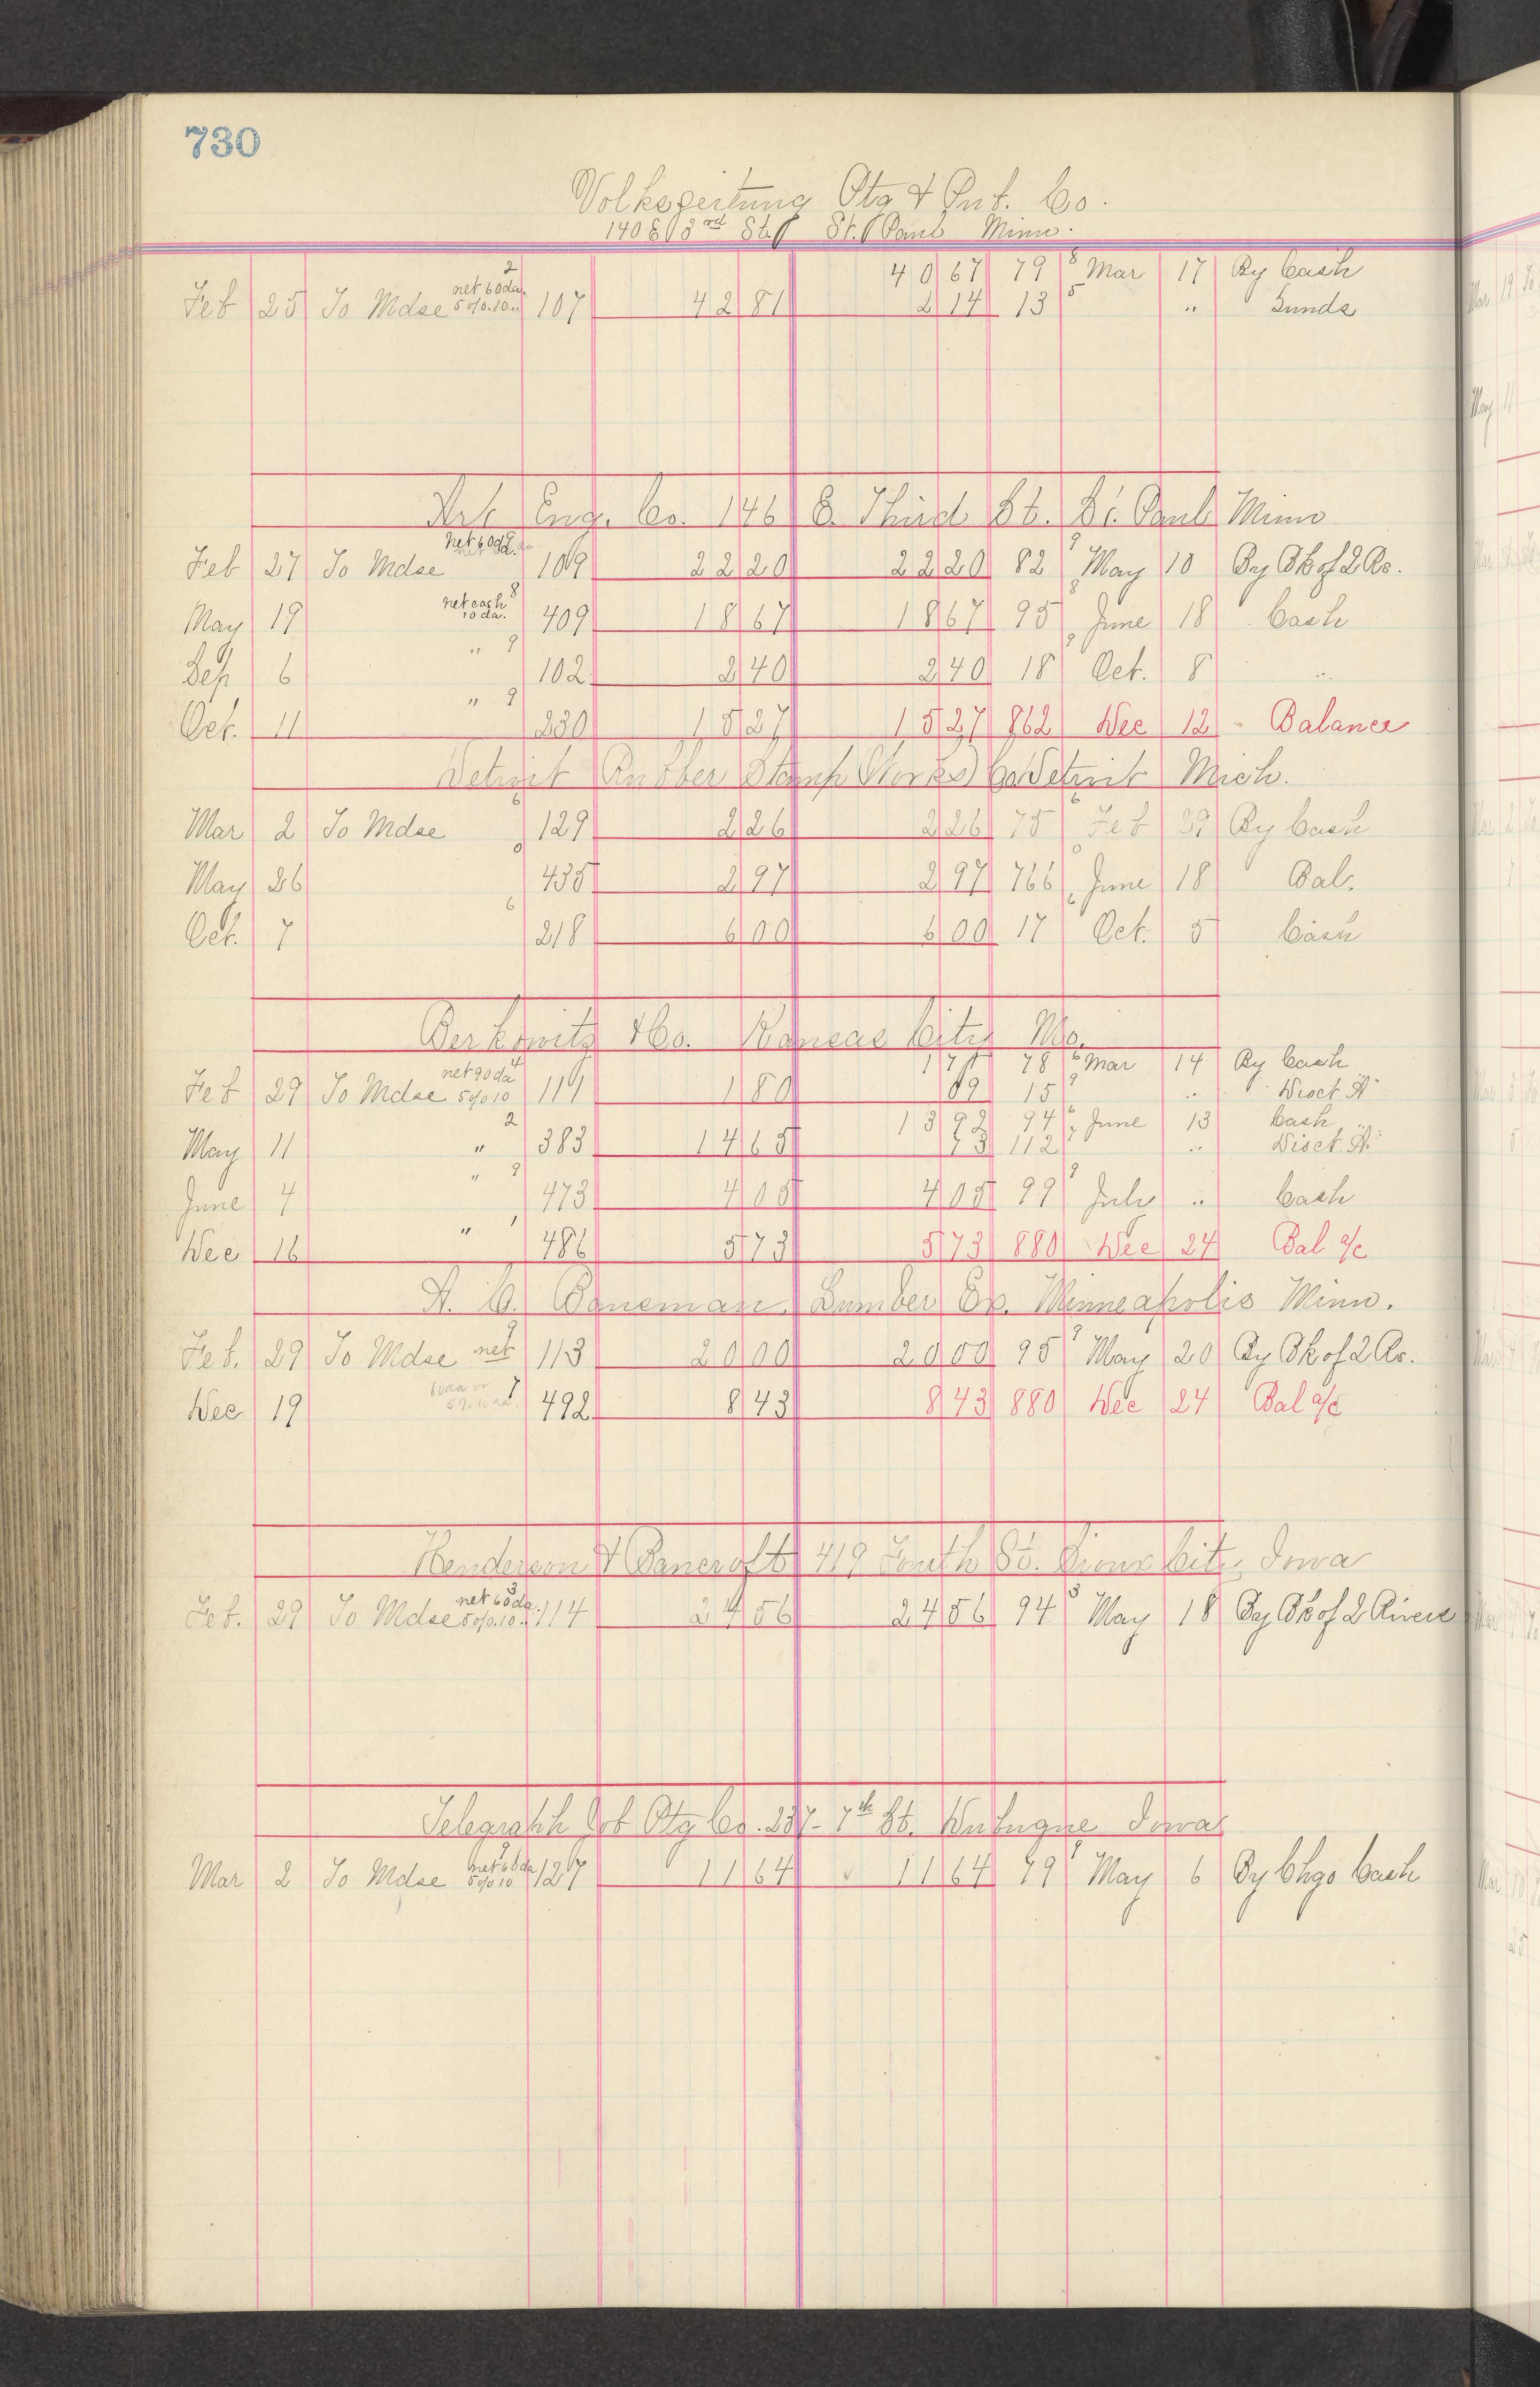 730
Volkszeitung Ptg & Pub. Co.
140 E 3rd St. St. Paul Minn.
2 40 67 79 8 Mar 17 By Cash
Feb 25 To Mdse net 60 da. 5% 10 " 107 42 81 2 14 13 5 " Sunds
Art Eng. Co. 146 E. Third St. St. Paul Minn
Feb 27 To Mdse net 60 da. 109 22 20 22 20 82 9 May 10 By Bk of 2 Rs.
May 19 net cash 10 da. 8 409 18 67 18 67 95 8 June 18 Cash
Sep 6 " 9 102 2 40 2 40 18 9 Oct. 8 "
Oct. 11 " 9 230 15 27 15 27 862 Dec 12 Balance
Detroit Rubber Stamp Works Co Detroit Mich.
Mar 2 To Mdse 6 129 2 26 2 26 75 6 Feb 29 By Cash
May 26 0 435 2 97 2 97 766 0 June 18 Bal.
Oct. 7 6 218 6 00 6 00 17 6 Oct. 5 Cash
Berkowitz & Co. Kansas City Mo.
1 71 78 6 Mar 14 By Cash
Feb 29 To Mdse net 90 da 5% 10 111 1 80 09 15 9 " Disct A
13 92 94 6 June 13 Cash
May 11 " 2 383 14 65 73 112 7 " Disct. A
June 4 " 9 473 4 05 4 05 99 9 July " Cash
Dec 16 " 1 486 5 73 5 73 880 Dec 24 Bal a/c
A. C. Boneman, Lumber Ex. Minneapolis Minn.
Feb. 29 To Mdse net 9 113 20 00 20 00 95 9 May 20 By Bk of 2 Rs.
Dec 19 60 da or 5% 10 da. 7 492 8 43 8 43 880 Dec 24 Bal a/c
Henderson & Bancroft 419 Fourth St. Sioux City, Iowa
Feb. 29 To Mdse net 60 da. 5% 10 " 3 114 24 56 24 56 94 3 May 18 By Bk of 2 Rivers
Telegraph Job Ptg Co. 237- 7th St. Dubuque Iowa
Mar 2 To Mdse net 60 da 5% 10 127 11 64 11 64 79 1 May 6 By Chgo Cash